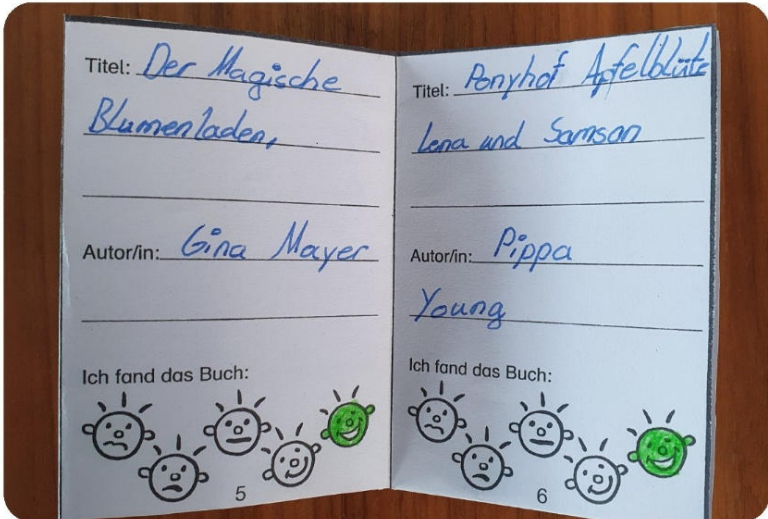 Titel: Der Magische
Blumenladen,
Autor/in: Gina Mayer
Ich fand das Buch:
5
Titel: Ponyhof Apfelblüte
Lena und Samson
Autor/in: Pippa
Young
Ich fand das Buch:
6